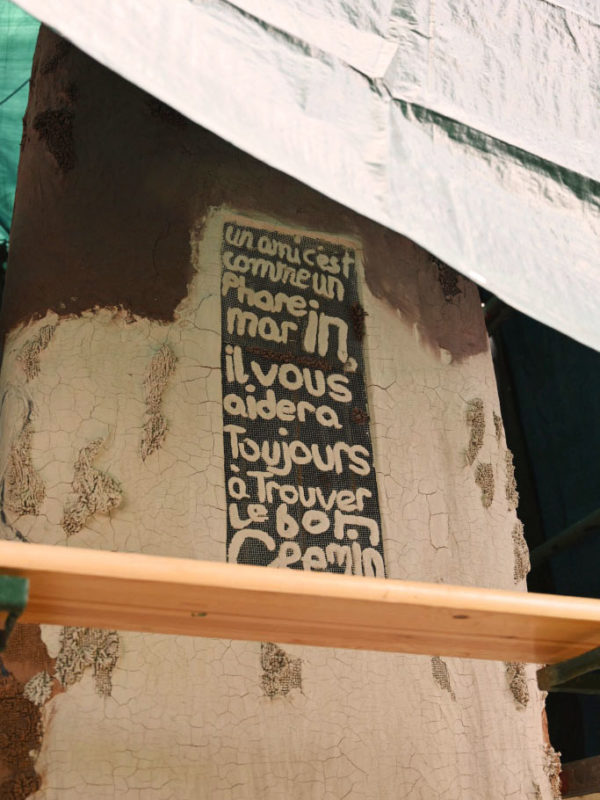 un ami c'est
comme un
Phare in
mar in,
il vous
aidera
Toujours
à Trouver
Le bon
Chemin